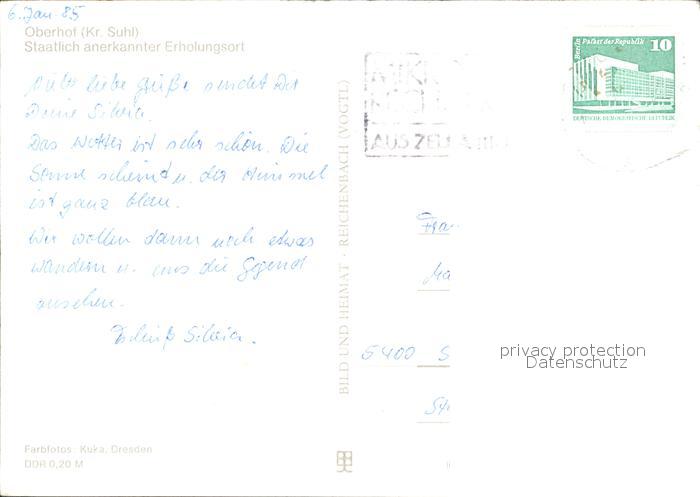 6. Jan. 85
Oberhof (Kr. Suhl)
Staatlich anerkannter Erholungsort
Viele liebe Grüße sendet Dir
Deine Silvia.
Das Wetter ist sehr schön. Die
Sonne scheint u. der Himmel
ist ganz blau.
Wir wollen dann noch etwas
wandern u. uns die Gegend
ansehen.
Tschüß Silvia.
Farbfotos: Kuka, Dresden
DDR 0,20 M
BILD UND HEIMAT · REICHENBACH (VOGTL)
AUS ZELLA
Berlin Palast der Republik
10
DEUTSCHE DEMOKRATISCHE REPUBLIK
5400 S
privacy protection
Datenschutz